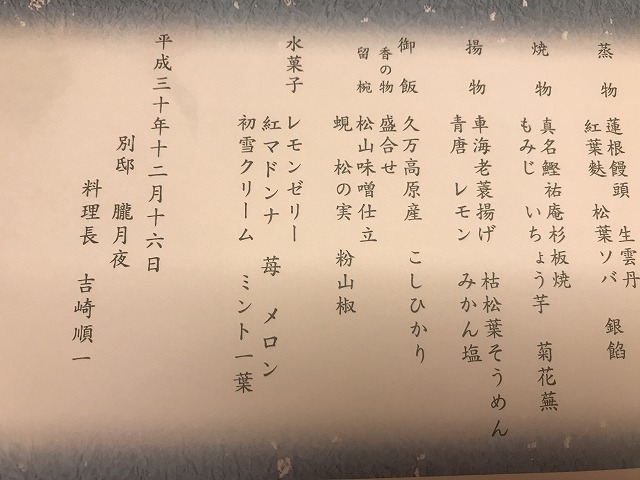 蒸物　蓮根饅頭　生雲丹　銀餡
紅葉麩　松葉ソバ
焼物　真名鰹祐庵杉板焼
もみじ　いちょう芋　菊花蕪
揚物　車海老蓑揚げ　枯松葉そうめん
青唐　レモン　みかん塩
御飯　久万高原産　こしひかり
香の物　盛合せ
留椀　松山味噌仕立
蜆　松の実　粉山椒
水菓子　レモンゼリー　苺　メロン
紅マドンナ
初雪クリーム　ミント一葉
平成三十年十二月十六日
別邸　朧月夜
料理長　吉崎順一